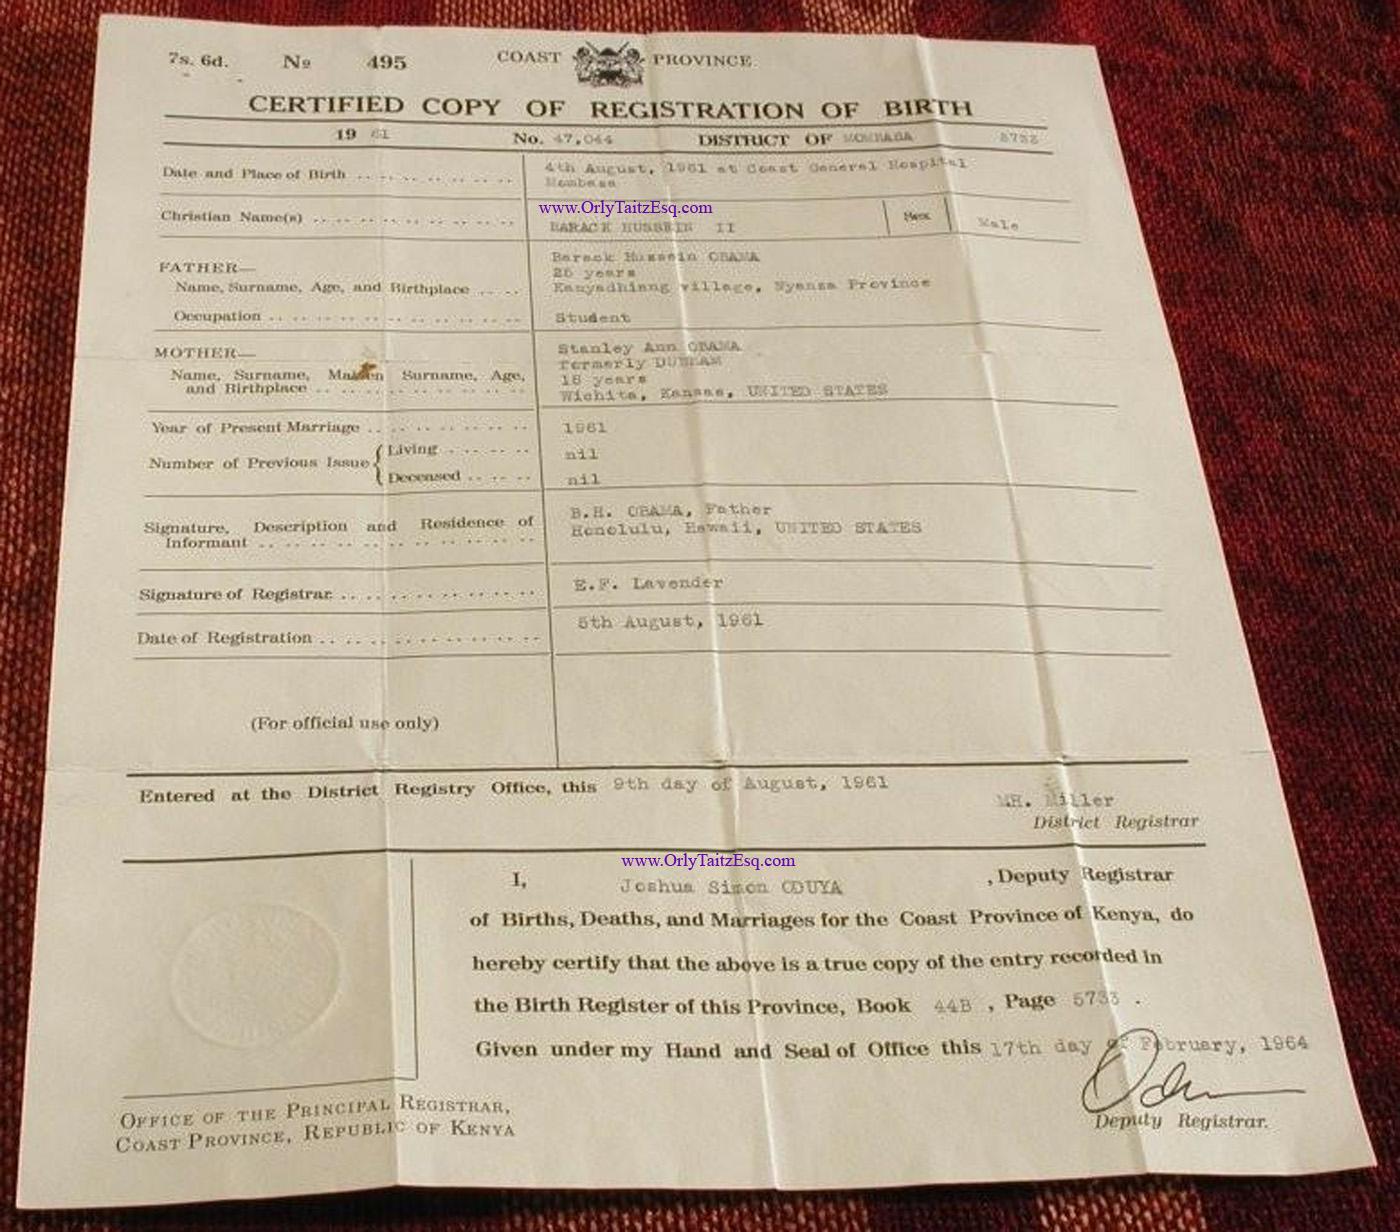 7s. 6d. No 495 COAST PROVINCE
CERTIFIED COPY OF REGISTRATION OF BIRTH
19 61 No. 47,044 DISTRICT OF MOMBASA 5733
Date and Place of Birth .. .. .. .. .. .. .. 4th August, 1961 at Coast General Hospital
Mombasa
www.OrlyTaitzEsq.com
Christian Name(s) .. .. .. .. .. .. .. .. .. BARACK HUSSEIN II Sex Male
FATHER—
Barack Hussein OBAMA
25 years
Name, Surname, Age, and Birthplace .. .. Kanyadhiang village, Nyanza Province
Occupation .. .. .. .. .. .. .. .. .. .. .. Student
MOTHER—
Stanley Ann OBAMA
formerly DUNHAM
Name, Surname, Maiden Surname, Age, 18 years
and Birthplace .. .. .. .. .. .. .. .. .. Wichita, Kansas, UNITED STATES
Year of Present Marriage .. .. .. .. .. .. .. 1961
Number of Previous Issue { Living .. .. .. .. nil
Deceased .. .. .. nil
Signature, Description and Residence of B.H. OBAMA, Father
Informant .. .. .. .. .. .. .. .. .. .. .. .. Honolulu, Hawaii, UNITED STATES
Signature of Registrar .. .. .. .. .. .. .. .. E.F. Lavender
Date of Registration .. .. .. .. .. .. .. .. .. 5th August, 1961
(For official use only)
Entered at the District Registry Office, this 9th day of August, 1961
MH. Miller
District Registrar
www.OrlyTaitzEsq.com
I, Joshua Simon ODUYA , Deputy Registrar
of Births, Deaths, and Marriages for the Coast Province of Kenya, do
hereby certify that the above is a true copy of the entry recorded in
the Birth Register of this Province, Book 44B , Page 5733 .
Given under my Hand and Seal of Office this 17th day of February, 1964
Deputy Registrar.
OFFICE OF THE PRINCIPAL REGISTRAR,
COAST PROVINCE, REPUBLIC OF KENYA